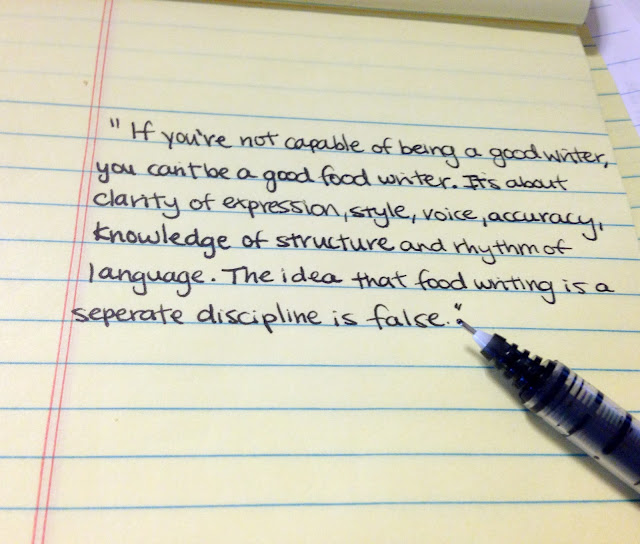 "If you're not capable of being a good writer,
you can't be a good food writer. It's about
clarity of expression, style, voice, accuracy,
knowledge of structure and rhythm of
language. The idea that food writing is a
seperate discipline is false."